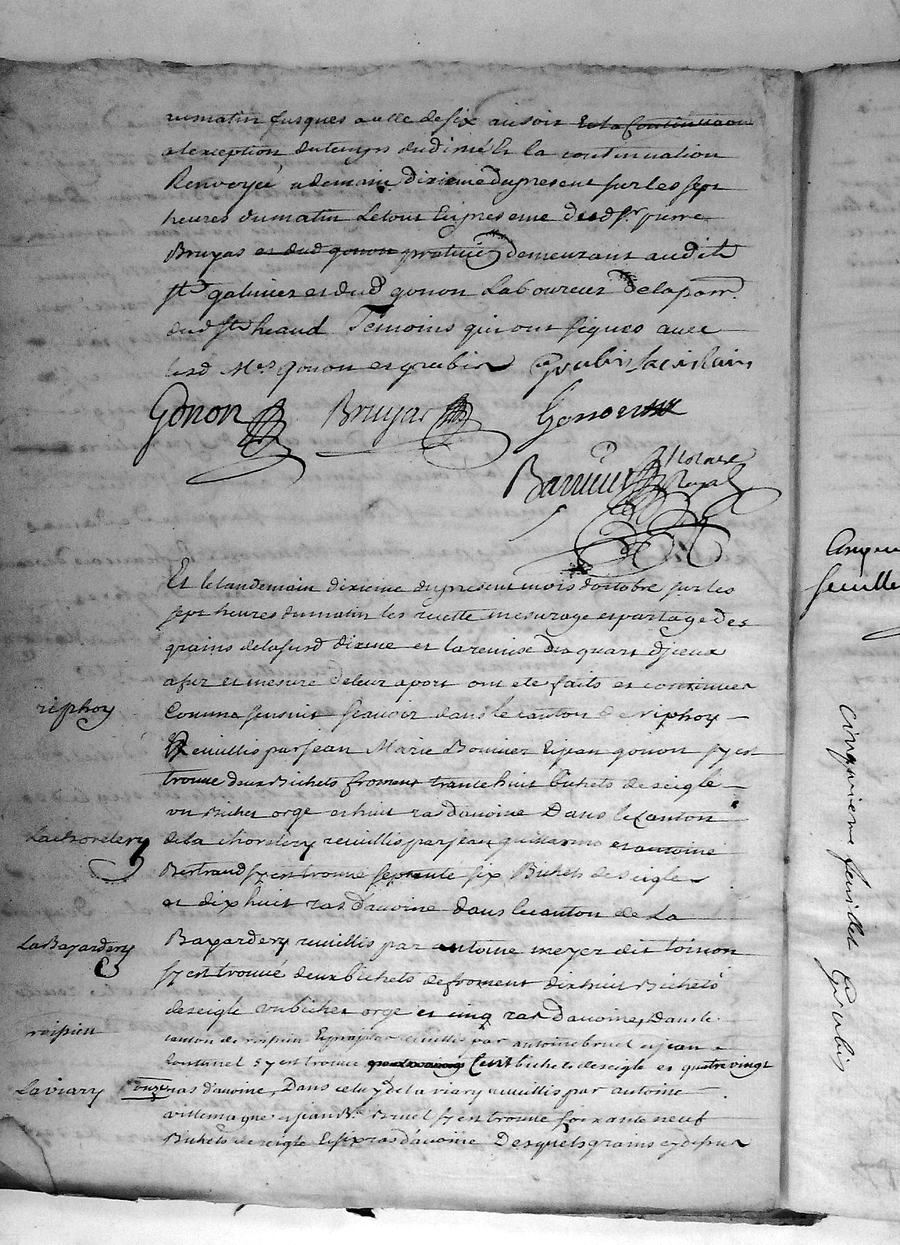 du matin jusques a celle de six au soir et la continuation
a lexception du temps du diné Et la continuation
Renvoyée a demain dixieme du present sur les sept
heures du matin Le tout En presence dud Sr pierre
Bruyas et dud gonon praticie demeurant audit
St galmier et dud gonon Laboureur de la parr.
dud St heaud Temoins qui ont signes avec
lesd Mes gonon et grubis Grubis
Gonon Bruyas Gonon
Notaire
Royal
Et le landemain dixieme du present mois doctobre sur les
sept heures du matin les recette mesurage et partage des
grains de la susd dixme et la remise du quart djceux
a fur et mesure de leur aport ont ete faits et continues
Comme sensuit scavoir dans le canton de riphoy
riphoy
Reuillis par jean Marie Bonnier Et jean gonon sy est
trouve deux Bichets froment trante huit bichets de seigle
un Bichet orge et huit ras davoine Dans le Canton
Lachorelery
de la chorelery reuillis par jean guillaume et antoine
Bertrand sy est trouve septante six Bichets de seigle
et dix huit ras davoine dans le canton de La
La Bayardery
Bayardery reuillis par antoine meyer dit toinon
sy est trouvé deux bichets de froment dix huit Bichets
de seigle un bichet orge et cinq ras davoine, Dans le
roispieu
canton de roispieu reuillis par antoine bruel et jean
fontanel sy est trouve Cent bichets de seigle et quatre vingt
La viary
onze ras davoine, Dans celuy de la viary reuillis par antoine
villemagne et jean Bte Bruel sy est trouve soixante neuf
Bichets de seigle Et six ras davoine Desquels grains cy dessus
feuille
Cinquieme feuillet Grubis